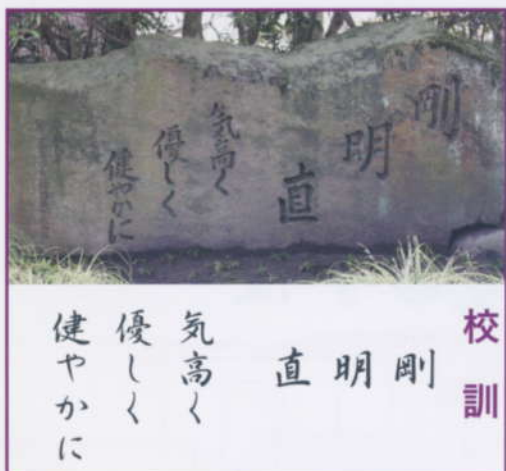 剛
明
直
気高く
優しく
健やかに
校訓
剛
明
直
気高く
優しく
健やかに